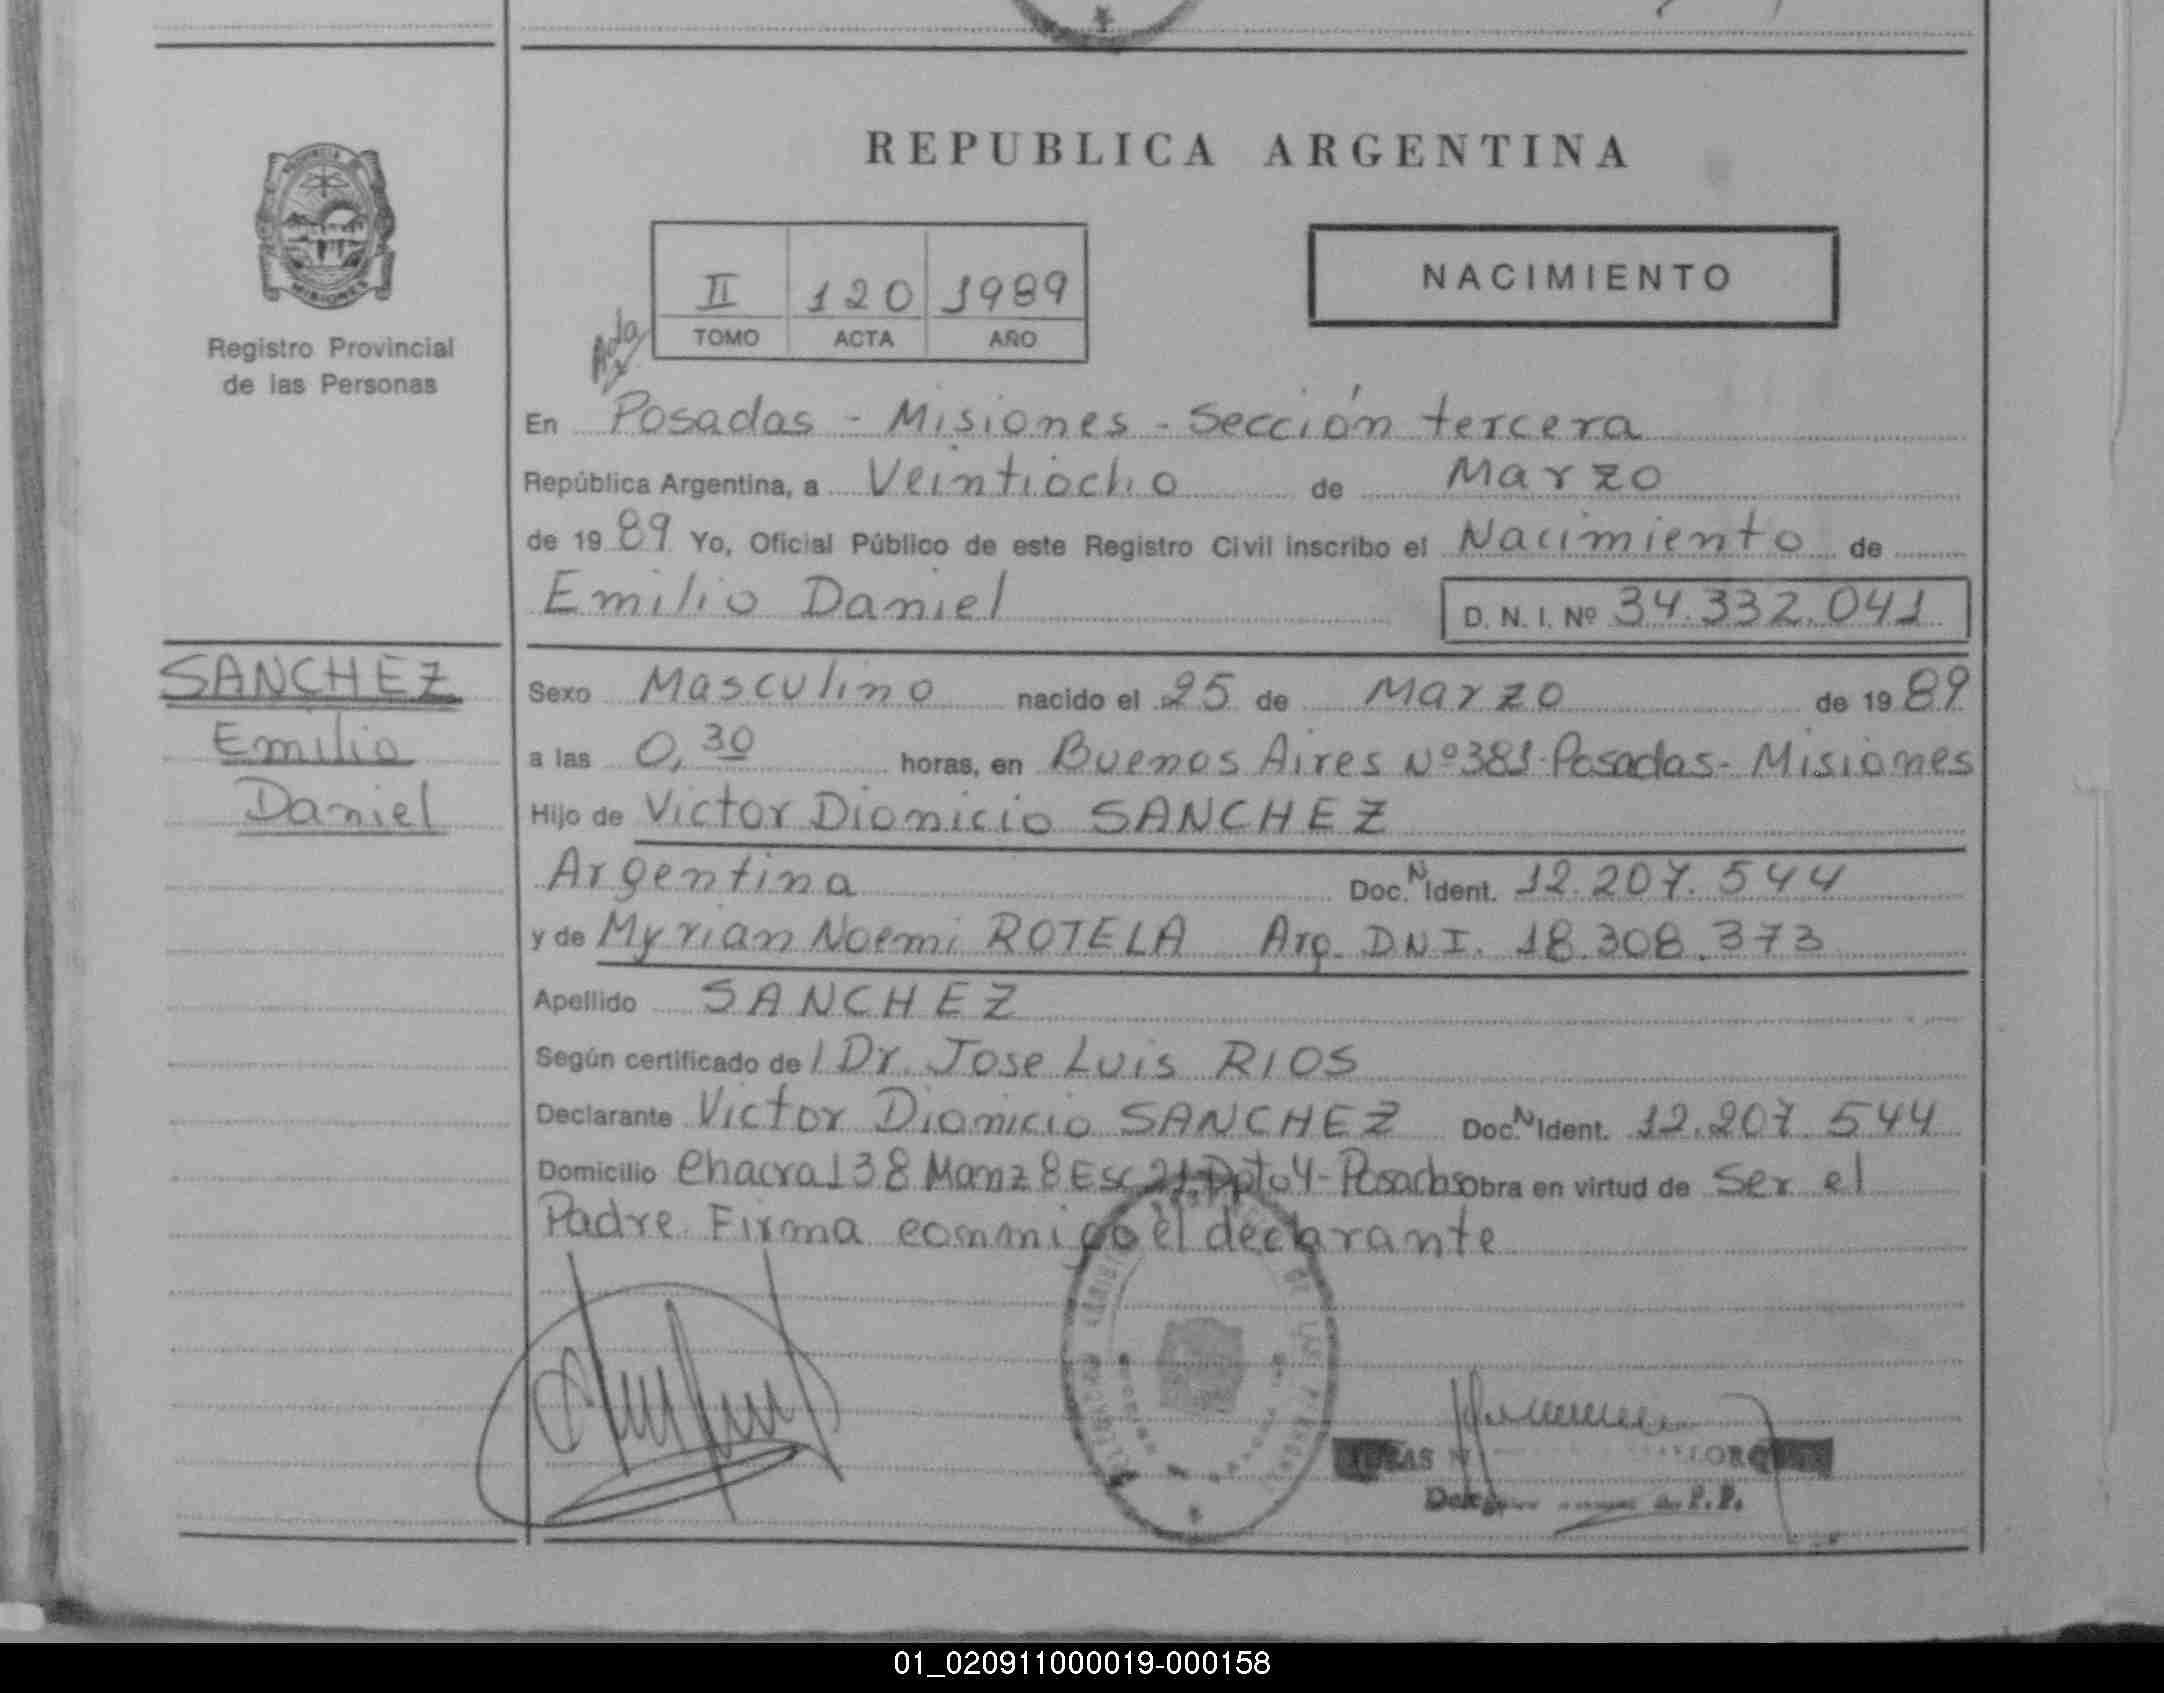 REPUBLICA ARGENTINA
PROVINCIA
MISIONES
Registro Provincial
de las Personas
II 120 1989
TOMO ACTA AÑO
NACIMIENTO
Acta
En Posadas - Misiones - Sección tercera
República Argentina, a Veintiocho de Marzo
de 1989 Yo, Oficial Público de este Registro Civil inscribo el Nacimiento de
Emilio Daniel D. N. I. Nº 34.332.041
SANCHEZ
Emilio
Daniel
Sexo Masculino nacido el 25 de Marzo de 1989
a las 0,30 horas, en Buenos Aires Nº 381-Posadas- Misiones
Hijo de Victor Dionicio SANCHEZ
Argentina Doc. N Ident. 12.207.544
y de Myrian Noemi ROTELA Arg. DNI. 18.308.373
Apellido SANCHEZ
Según certificado de l Dr. Jose Luis RIOS
Declarante Victor Dionicio SANCHEZ Doc. N Ident. 12.207.544
Domicilio Chacra 138 Manz 8 Esc 21-Dpto 4- Posadas obra en virtud de Ser el
Padre. Firma conmigo el declarante
DE LAS
01_020911000019-000158